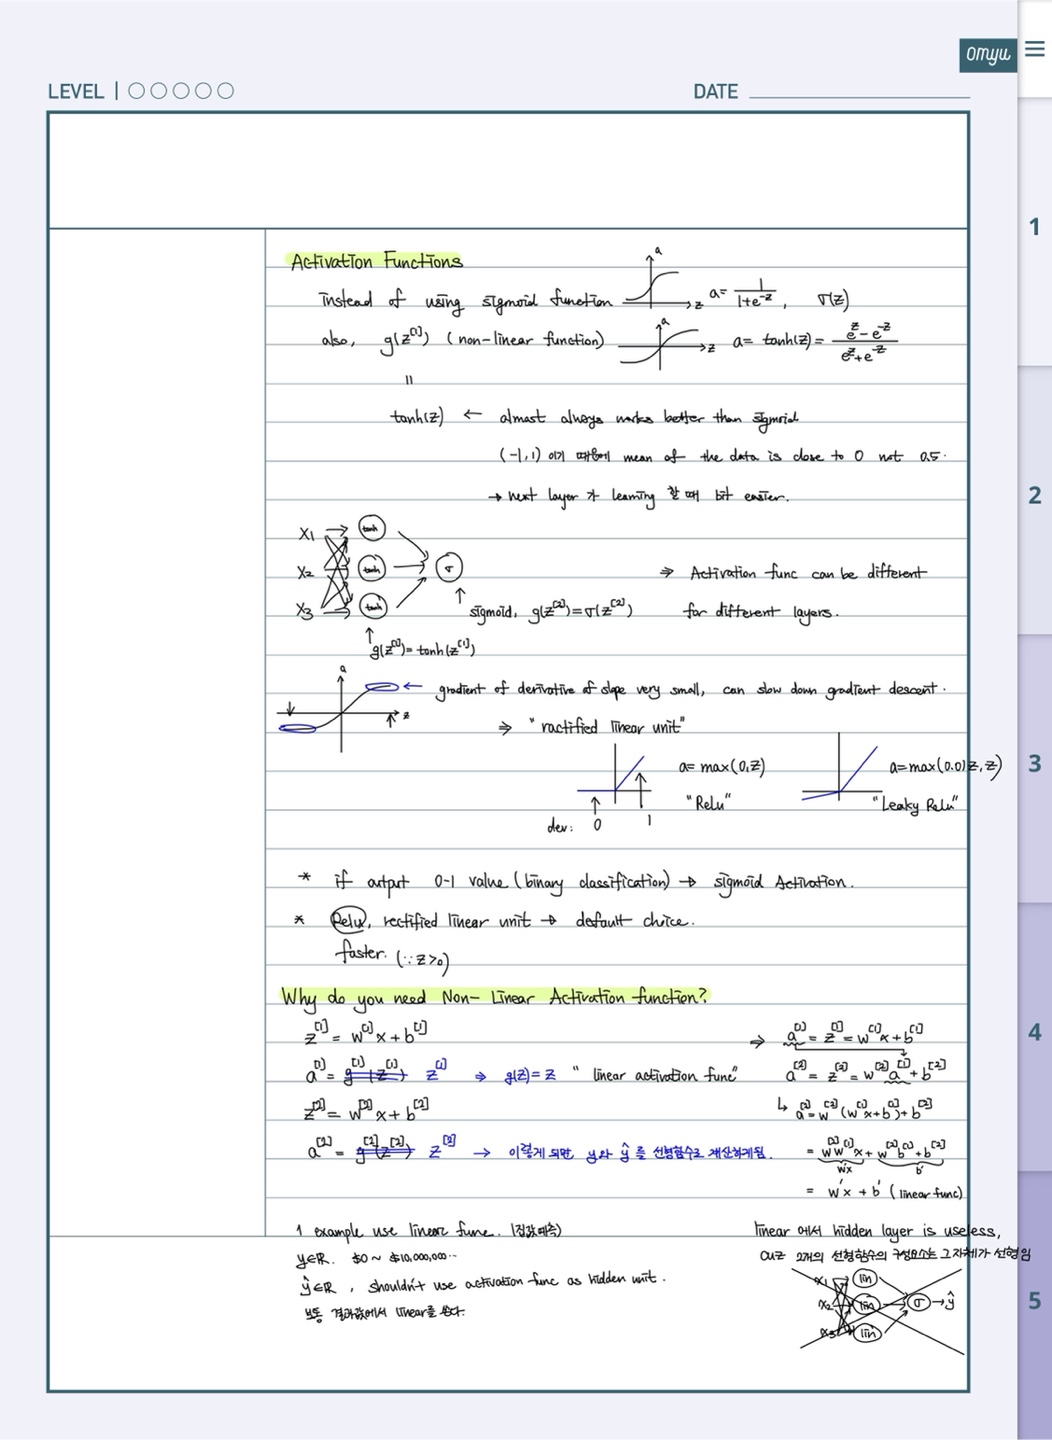 omyu
LEVEL | ○○○○○
DATE
1
2
3
4
5
Activation Functions
instead of using sigmoid function a z a= 1/(1+e^-z), σ(z)
also, g(z^[1]) (non-linear function) a z a= tanh(z) = (e^z - e^-z)/(e^z + e^-z)
=
tanh(z) ← almost always works better than sigmoid
(-1,1) 이기 때문에 mean of the data is close to 0 not 0.5.
→ next layer가 learning 할때 bit easier.
x1 tanh
x2 tanh σ
x3 tanh
⇒ Activation func can be different
for different layers.
↑ sigmoid, g(z^[2])=σ(z^[2])
↑ g(z^[1])=tanh(z^[1])
a z
← gradient of derivative of slope very small, can slow down gradient descent.
⇒ "ractified linear unit"
a= max(0,z)
"Relu"
dev: 0 1
a=max(0.01z, z)
"Leaky Relu"
* if output 0-1 value (binary classification) → sigmoid Activation.
* Relu, rectified linear unit → default choice.
faster. (∵z>0)
Why do you need Non-Linear Activation function?
z^[1] = w^[1]x + b^[1]
a^[1] = g^[1](z^[1]) z^[1] ⇒ g(z)=z "linear activation func"
z^[2] = w^[2]x + b^[2]
a^[2] = g^[2](z^[2]) z^[2] → 이렇게 되면 y와 ŷ를 선형함수로 계산하게됨.
⇒ a^[1] = z^[1] = w^[1]x + b^[1]
a^[2] = z^[2] = w^[2]a^[1] + b^[2]
↳ a^[2] = w^[2](w^[1]x+b^[1])+b^[2]
= w^[2]w^[1]x + w^[2]b^[1] + b^[2]
w'x b'
= w'x + b' (linear func)
1 example use linear func. (집값예측)
y∈R. $0 ~ $10,000,000…
ŷ∈R, shouldn't use activation func as hidden unit.
보통 결과값에서 linear를 쓴다.
linear 에서 hidden layer is useless,
cuz 2개의 선형함수의 구성요소는 그자체가 선형임
x1 lin
x2 lin σ → ŷ
x3 lin